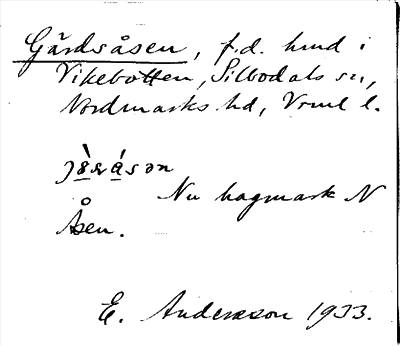 Gårdsåsen, f.d. hmd i
Vikebotten, Silbodals sn,
Nordmarks hd, Vrml l.
Nu hagmark N
Åsen.
E. Andersson 1933.